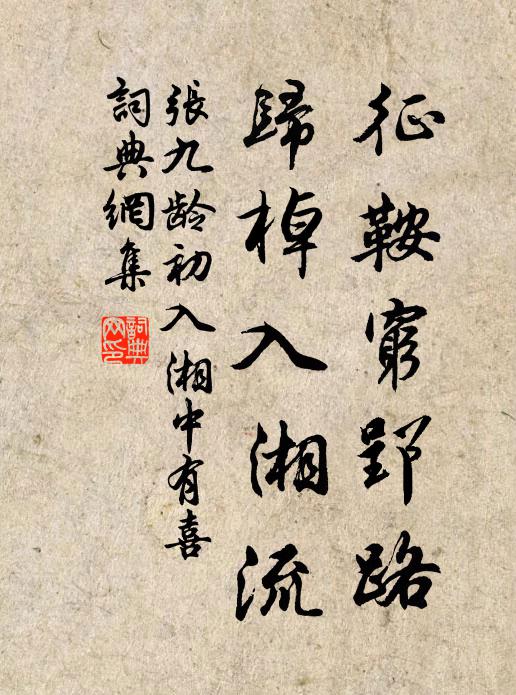 征鞍窮郢路
歸棹入湘流
張九龄初入湘中有喜
詞典網集
詞典
网印